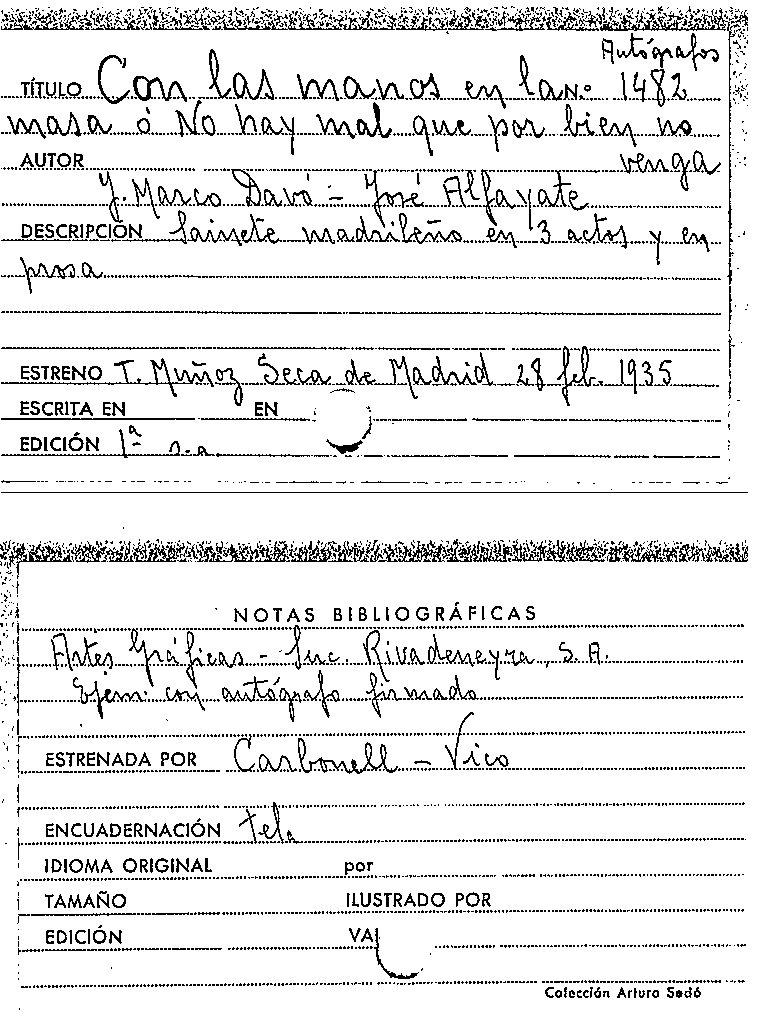 Autógrafos
TÍTULO Con las manos en la N.º 1482
masa ó No hay mal que por bien no
AUTOR venga
J. Marco Davó - José Alfayate
DESCRIPCIÓN Sainete madrileño en 3 actos y en
prosa
ESTRENO T. Muñoz Seca de Madrid 28 feb. 1935
ESCRITA EN EN
EDICIÓN 1ª s.a.
NOTAS BIBLIOGRÁFICAS
Artes Gráficas - Suc. Rivadeneyra, S.A.
Ejem. con autógrafo firmado
ESTRENADA POR Carbonell - Vico
ENCUADERNACIÓN tela
IDIOMA ORIGINAL por
TAMAÑO ILUSTRADO POR
EDICIÓN VA
Colección Arturo Sedó